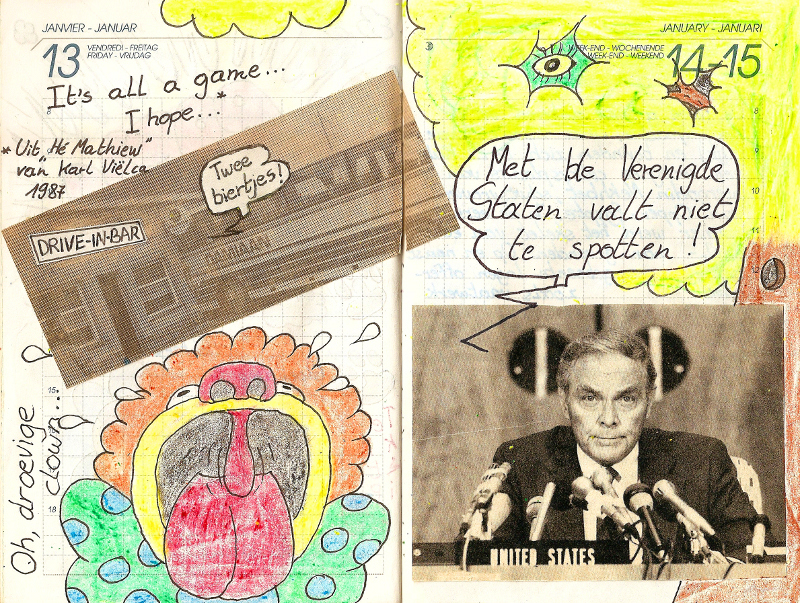 JANVIER - JANUAR
13 VENDREDI - FREITAG
FRIDAY - VRIJDAG
It's all a game...
I hope...*
* Uit "Hé Mathiew"
van Karl Vielca
1987
Twee
biertjes!
DRIVE-IN-BAR
15
18
Oh, droevige
clown...
JANUARY - JANUARI
WEEK-END - WOCHENENDE
WEEK-END - WEEKEND
14-15
8
9
10
11
Met de Verenigde
Staten valt niet
te spotten!
UNITED STATES